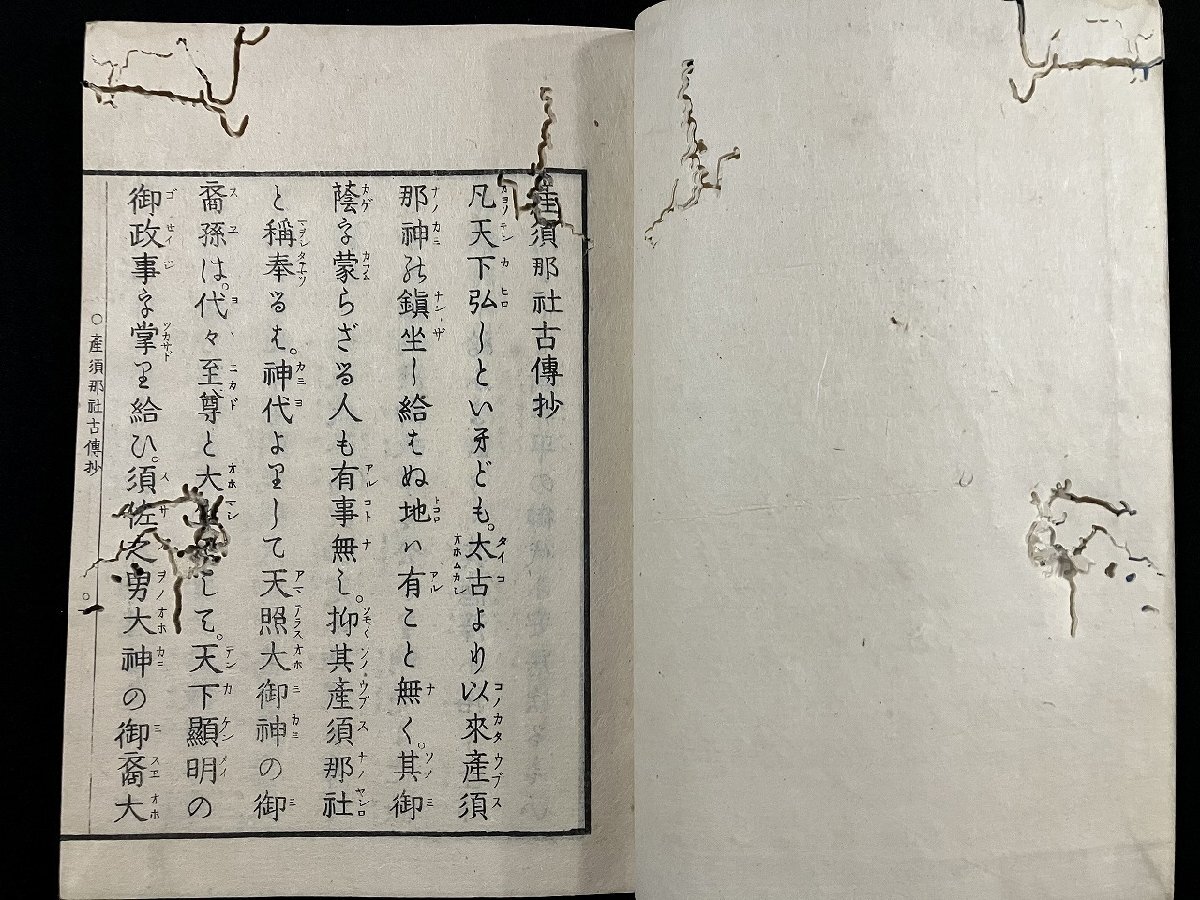 産須那社古傳抄
凡天下弘しといへども。太古より以來産須
那神の鎮坐し給はぬ地ハ有こと無く。其御
蔭を蒙らざる人も有事無し。抑其産須那社
と稱奉るは。神代よりして天照大御神の御
裔孫は。代々至尊と大して。天下顯明の
御政事を掌り給ひ。須佐之男大神の御裔大
○産須那社古傳抄